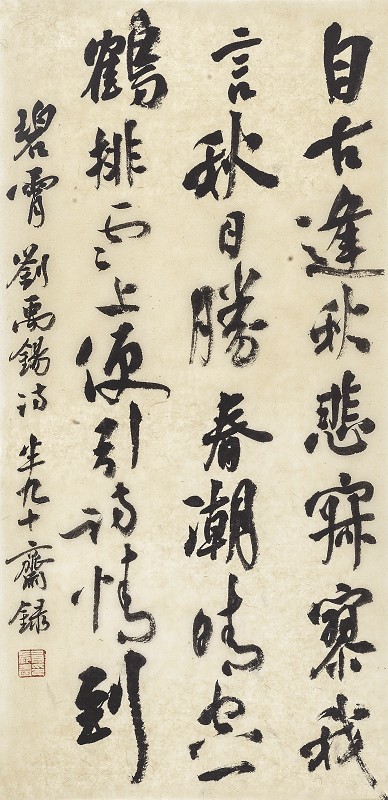 自古逢秋悲寂寥我
言秋日勝春潮晴空一
鶴排雲上便引詩情到
碧霄 劉禹錫詩 半九十齋録